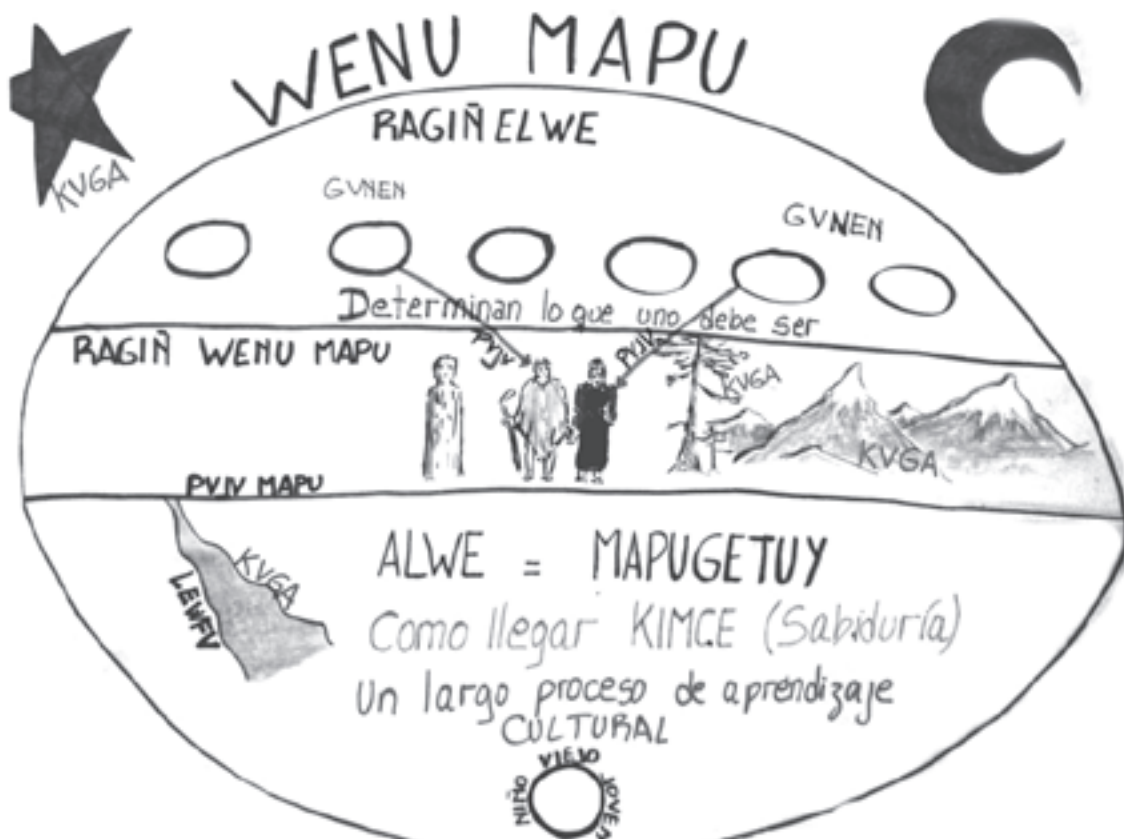 WENU MAPU
RAGIÑELWE
KVGA
GVNEN
GVNEN
Determinan lo que uno debe ser
RAGIÑ WENU MAPU
PVJV
PVJV
KVGA
KVGA
PVJV MAPU
KVGA
LEWFV
ALWE = MAPUGETUY
Como llegar KIMCE (Sabiduría)
Un largo proceso de aprendizaje
CULTURAL
NIÑO
VIEJO
JOVEN